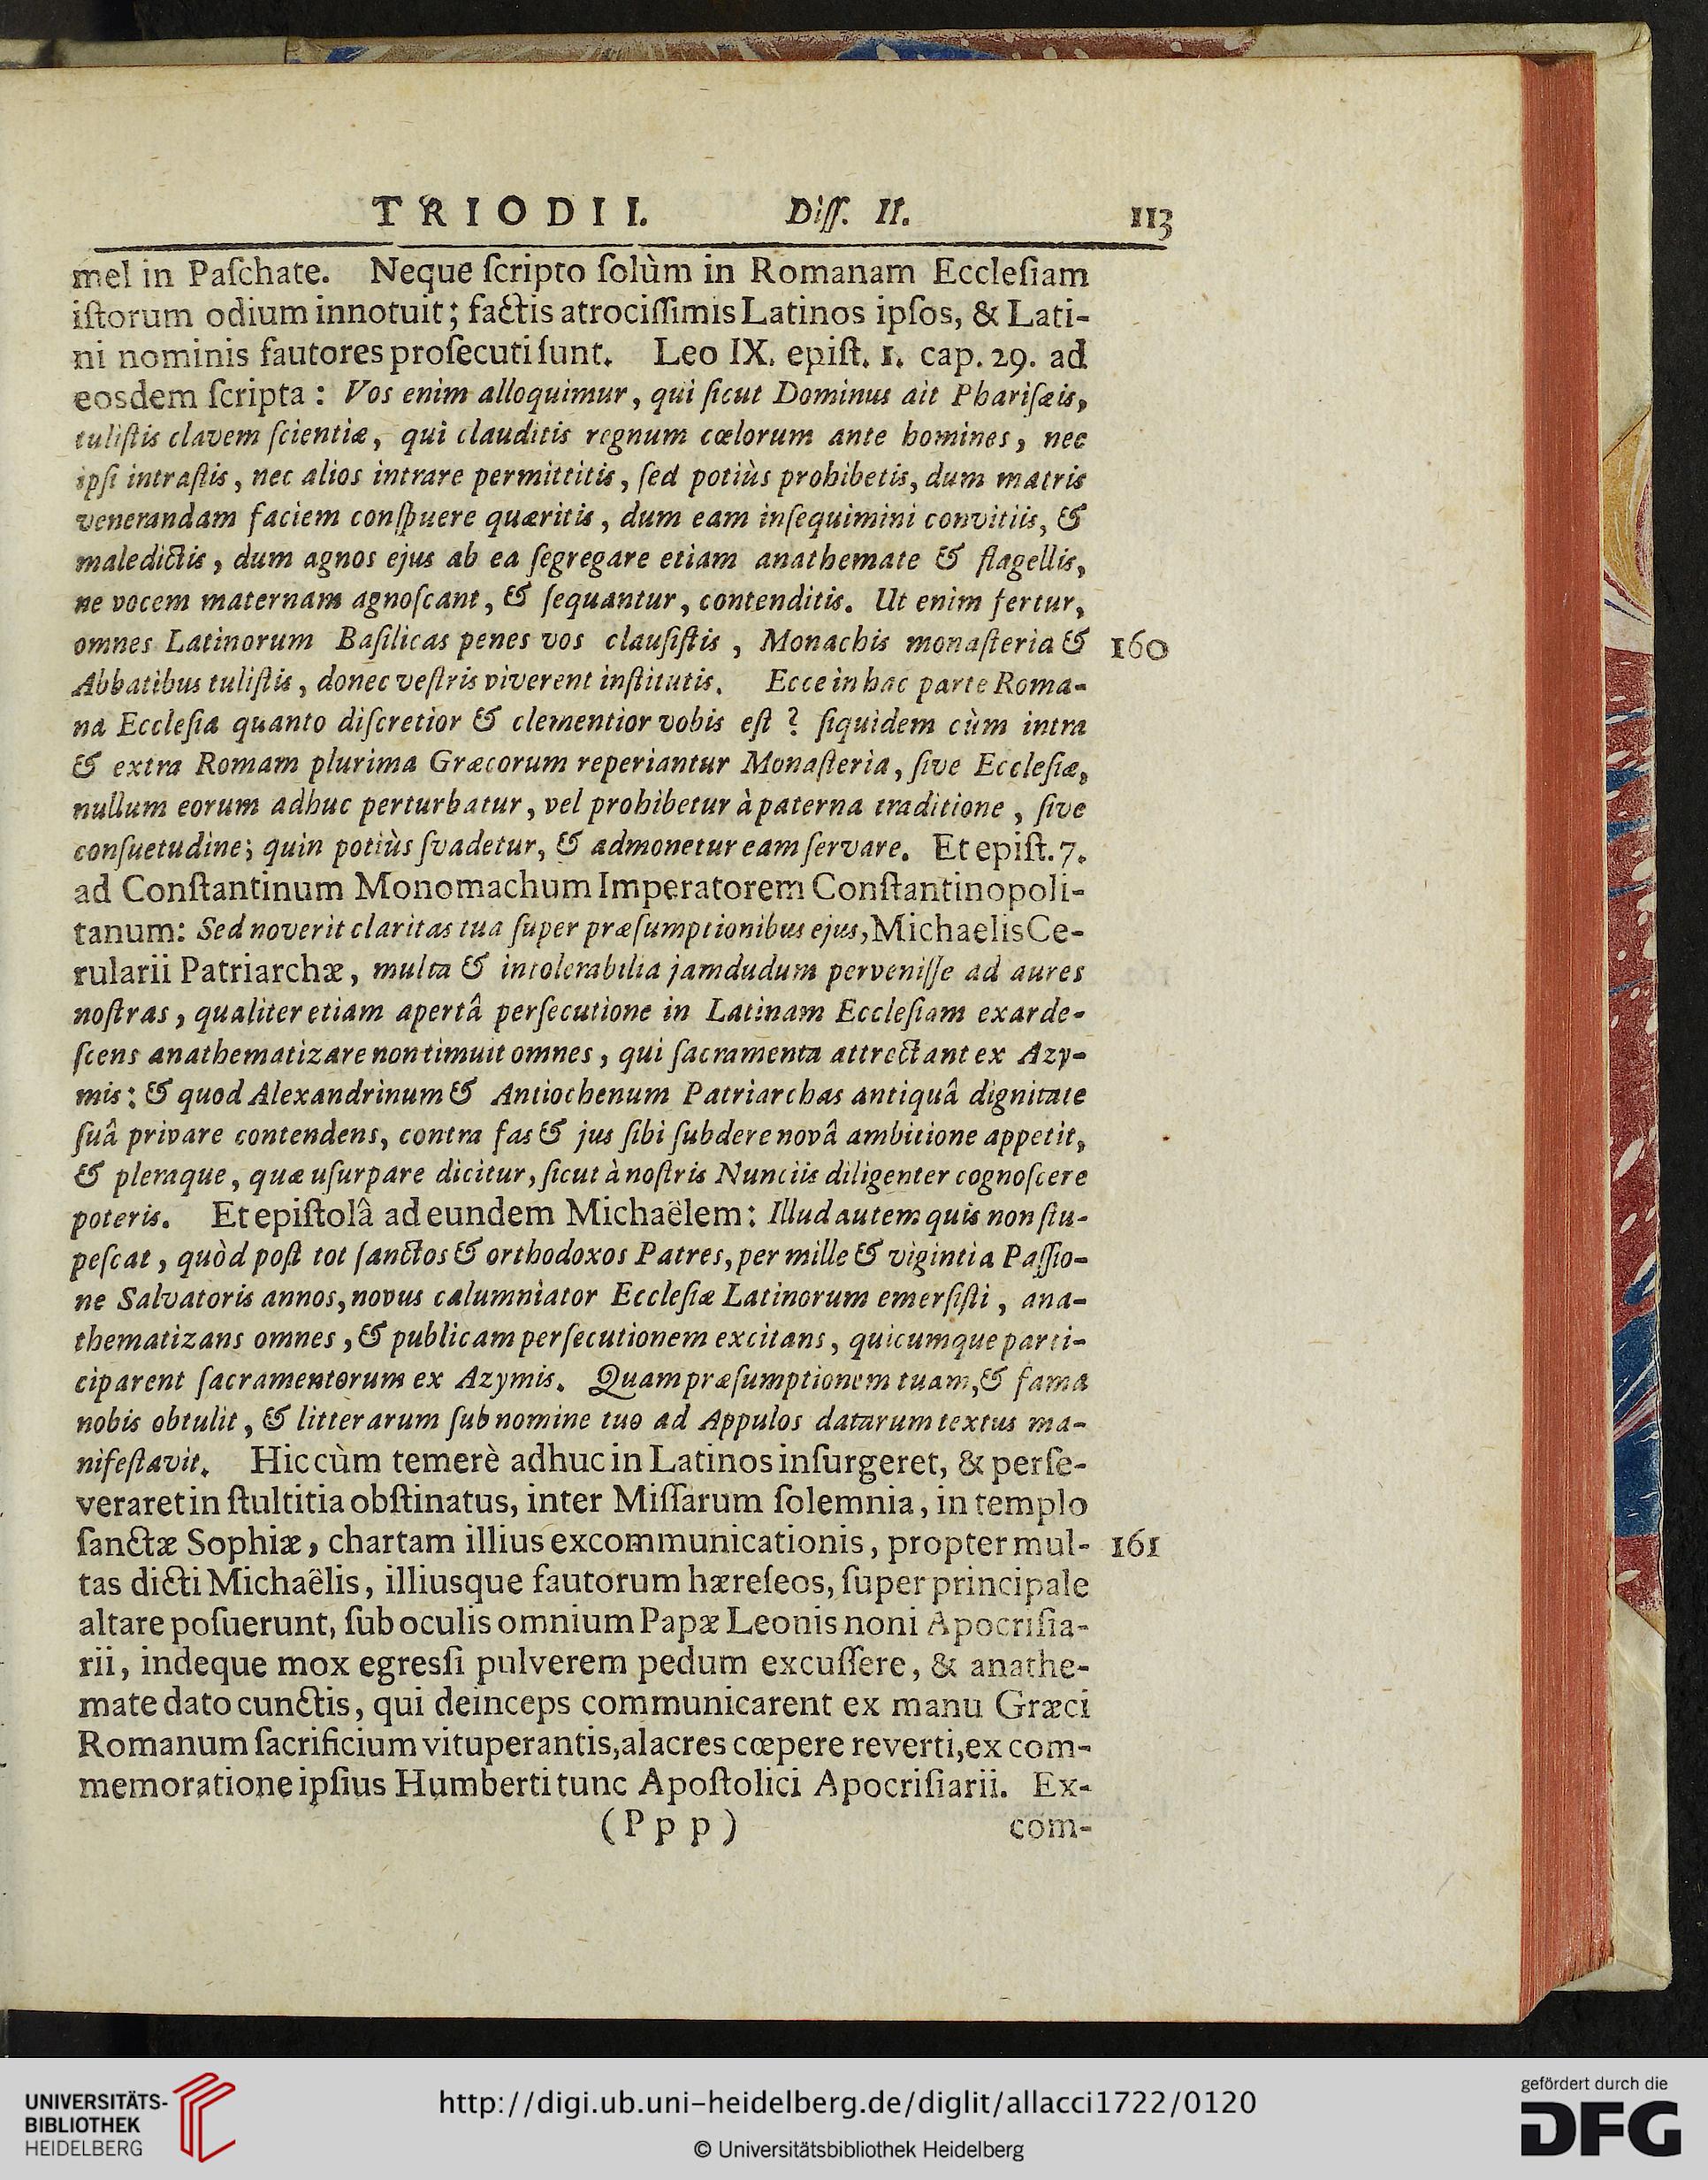 TRIODII. Diſſ. II. 113
mel in Paſchate. Neque ſcripto ſolùm in Romanam Eccleſiam
iſtorum odium innotuit; factis atrociſſimis Latinos ipſos, & Lati-
ni nominis fautores proſecuti ſunt. Leo IX. epiſt. 1. cap. 29. ad
eosdem ſcripta: Vos enim alloquimur, qui ſicut Dominus ait Phariſæis,
tuliſtis clavem ſcientiæ, qui clauditis regnum cœlorum ante homines, nec
ipſi intraſtis, nec alios intrare permittitis, ſed potiùs prohibetis, dum matris
venerandam faciem conſpuere quæritis, dum eam inſequimini convitiis, &
maledictis, dum agnos ejus ab ea ſegregare etiam anathemate & flagellis,
ne vocem maternam agnoſcant, & ſequantur, contenditis. Ut enim fertur,
omnes Latinorum Baſilicas penes vos clauſiſtis, Monachis monaſteria & 160
Abbatibus tuliſtis, donec veſtris viverent inſtitutis. Ecce in hac parte Roma-
na Eccleſia quanto diſcretior & clementior vobis eſt? ſiquidem cùm intra
& extra Romam plurima Græcorum reperiantur Monaſteria, ſive Eccleſiæ,
nullum eorum adhuc perturbatur, vel prohibetur à paterna traditione, ſive
conſuetudine; quin potiùs ſvadetur, & admonetur eam ſervare. Et epiſt. 7.
ad Conſtantinum Monomachum Imperatorem Conſtantinopoli-
tanum: Sed noverit claritas tua ſuper præſumptionibus ejus, Michaelis Ce-
rularii Patriarchæ, multa & intolerabilia jamdudum perveniſſe ad aures
noſtras, qualiter etiam apertâ perſecutione in Latinam Eccleſiam exarde-
ſcens anathematizare non timuit omnes, qui ſacramenta attrectant ex Azy-
mis: & quod Alexandrinum & Antiochenum Patriarchas antiquâ dignitate
ſuâ privare contendens, contra fas & jus ſibi ſubdere novâ ambitione appetit,
& pleraque, quæ uſurpare dicitur, ſicut à noſtris Nunciis diligenter cognoſcere
poteris. Et epiſtolâ ad eundem Michaëlem: Illud autem quis non ſtu-
peſcat, quòd poſt tot ſanctos & orthodoxos Patres, per mille & viginti a Paſſio-
ne Salvatoris annos, novus calumniator Eccleſiæ Latinorum emerſiſti, ana-
thematizans omnes, & publicam perſecutionem excitans, quicumque parti-
ciparent ſacramentorum ex Azymis. Quam præſumptionem tuam, & fama
nobis obtulit, & litterarum ſub nomine tuo ad Appulos datarum textus ma-
nifeſtavit. Hic cùm temerè adhuc in Latinos inſurgeret, & perſe-
veraret in ſtultitia obſtinatus, inter Miſſarum ſolemnia, in templo
ſanctæ Sophiæ, chartam illius excommunicationis, propter mul- 161
tas dicti Michaëlis, illiusque fautorum hæreſeos, ſuper principale
altare poſuerunt, ſub oculis omnium Papæ Leonis noni Apocriſia-
rii, indeque mox egreſſi pulverem pedum excuſſere, & anathe-
mate dato cunctis, qui deinceps communicarent ex manu Græci
Romanum ſacrificium vituperantis, alacres cœpere reverti, ex com-
memoratione ipſius Humberti tunc Apoſtolici Apocriſiarii. Ex-
(Ppp) com-
UNIVERSITÄTS-
BIBLIOTHEK
HEIDELBERG
http://digi.ub.uni-heidelberg.de/diglit/allacci1722/0120
© Universitätsbibliothek Heidelberg
gefördert durch die
DFG